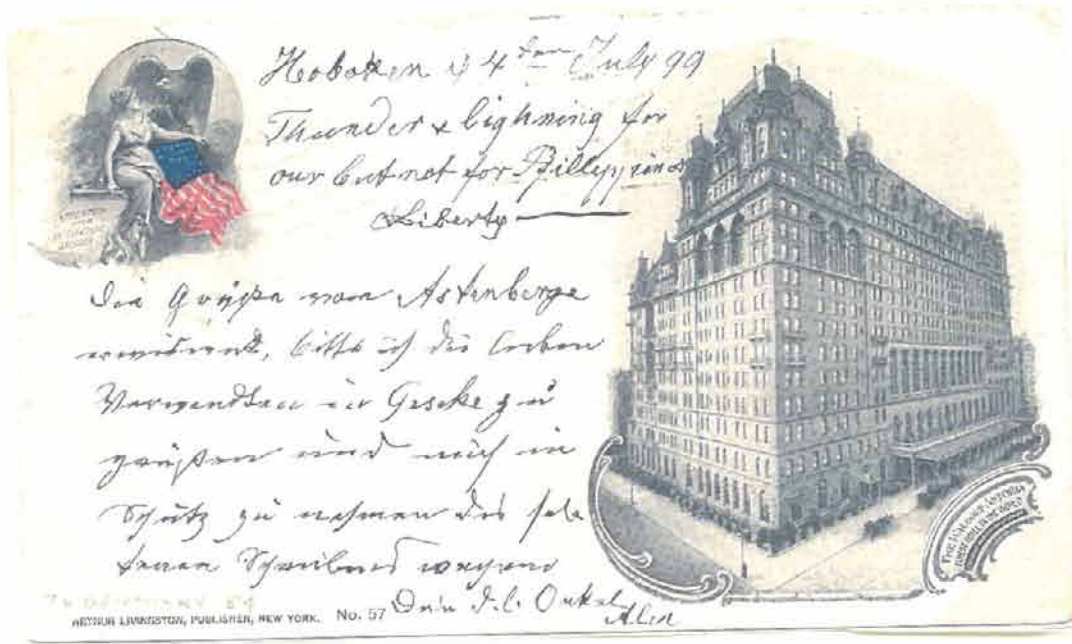 Hoboken d 4ten July 99
Thunder & lighning for
our but not for Fillippinos
Liberty
Die Grüße vom Astenberge
erwidernd, bitte ich die lieben
Verwandten in Geseke zu
grüßen und mich in
Schutz zu nehmen des sel
tenen Schreibens wegen
Dein Onkel
THE WALDORF-ASTORIA
ARTHUR LIVINGSTON, PUBLISHER, NEW YORK. No. 57